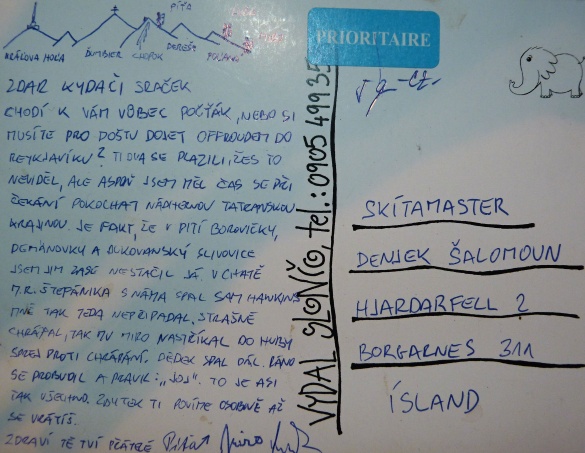 PÍŤA
KRÁĽOVA HOĽA ĎUMBIER CHOPOK DEREŠE POĽANA
ZDAR KYDAČI SRAČEK
CHODÍ K VÁM VŮBEC POŠŤÁK, NEBO SI
MUSÍTE PRO POŠTU DOJET OFFROUDEM DO
REYKJAVÍKU? TI DVA SE PLAZILI, ŽES TO
NEVIDĚL, ALE ASPOŇ JSEM MĚL ČAS SE PŘI
ČEKÁNÍ POKOCHAT NÁDHERNOU TATRANSKOU
KRAJINOU. JE FAKT, ŽE V PITÍ BOROVIČKY,
DEMÄNOVKY A BUKOVANSKÝ SLIVOVICE
JSEM JIM ZASE NESTAČIL JÁ. V CHATĚ
M.R. ŠTEFÁNIKA S NÁMA SPAL SAM HAWKINS
MNĚ TAK TEDA NEPŘIPADAL. STRAŠNĚ
CHRÁPAL, TAK MU MIRO NASTŘÍKAL DO HUBY
SPREJ PROTI CHRÁPÁNÍ. DĚDEK SPAL DÁL. RÁNO
SE PROBUDIL A PRAVIL: „JOJ". TO JE ASI
TAK VŠECHNO. ZBYTEK TI POVÍME OSOBNĚ AŽ
SE VRÁTÍŠ.
ZDRAVÍ TĚ TVÍ PŘÁTELÉ Miro
VYDAL SLONÍČ, tel.: 0905 49935
PRIORITAIRE
SKÍTAMASTER
DENJEK ŠALOMOUN
HJARDARFELL 2
BORGARNES 311
ÍSLAND